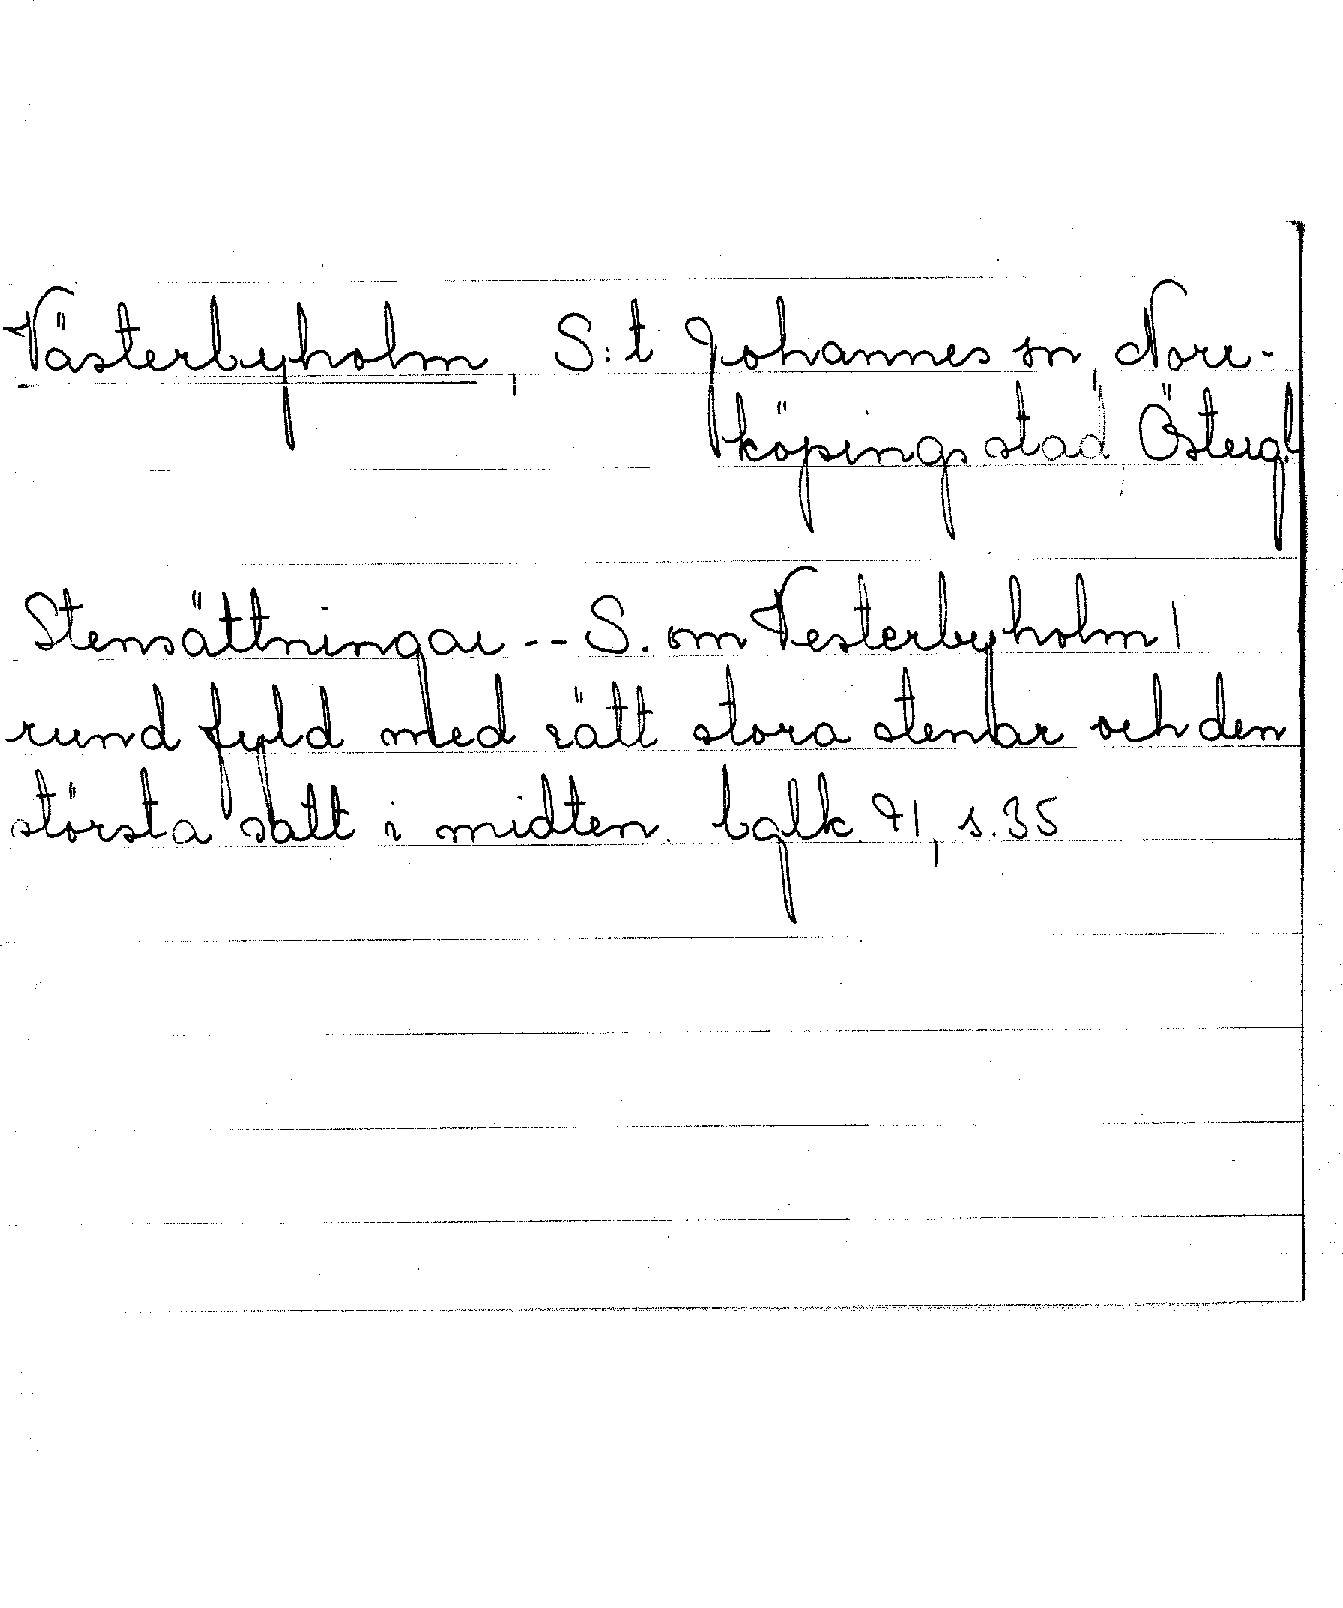 Västerbyholm, S:t Johannes sn, Norr-
köpings stad, Östergl
Stensättningar -- S. om Vesterbyholm 1
rund fyld med rätt stora stenar och den
största satt i midten. s. 35